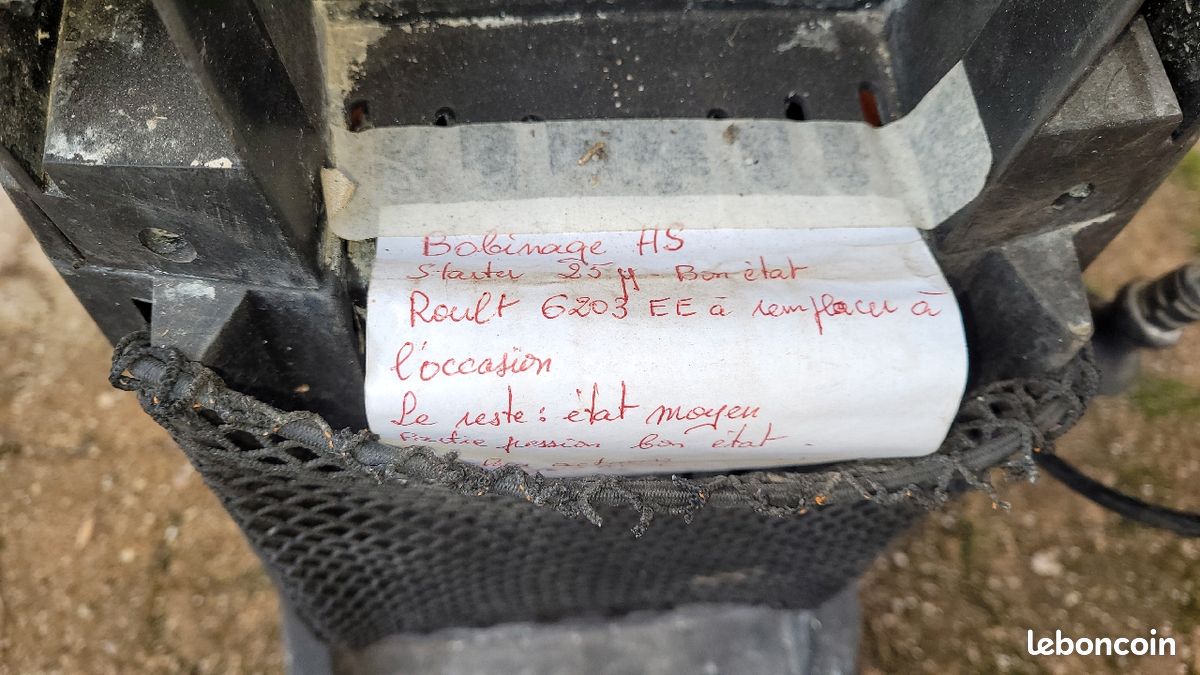 Bobinage HS
Starter 25 µ - Bon état
Roult 6203 EE à remplacer à
l'occasion
Le reste : état moyen
Partie pression bon état.
leboncoin